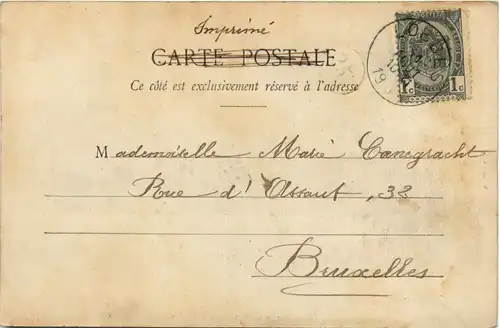 Imprimé
CARTE POSTALE
Ce côté est exclusivement réservé à l'adresse
1c 1c
Mademoiselle Marie Canegracht
Rue d'Assaut, 38
Bruxelles